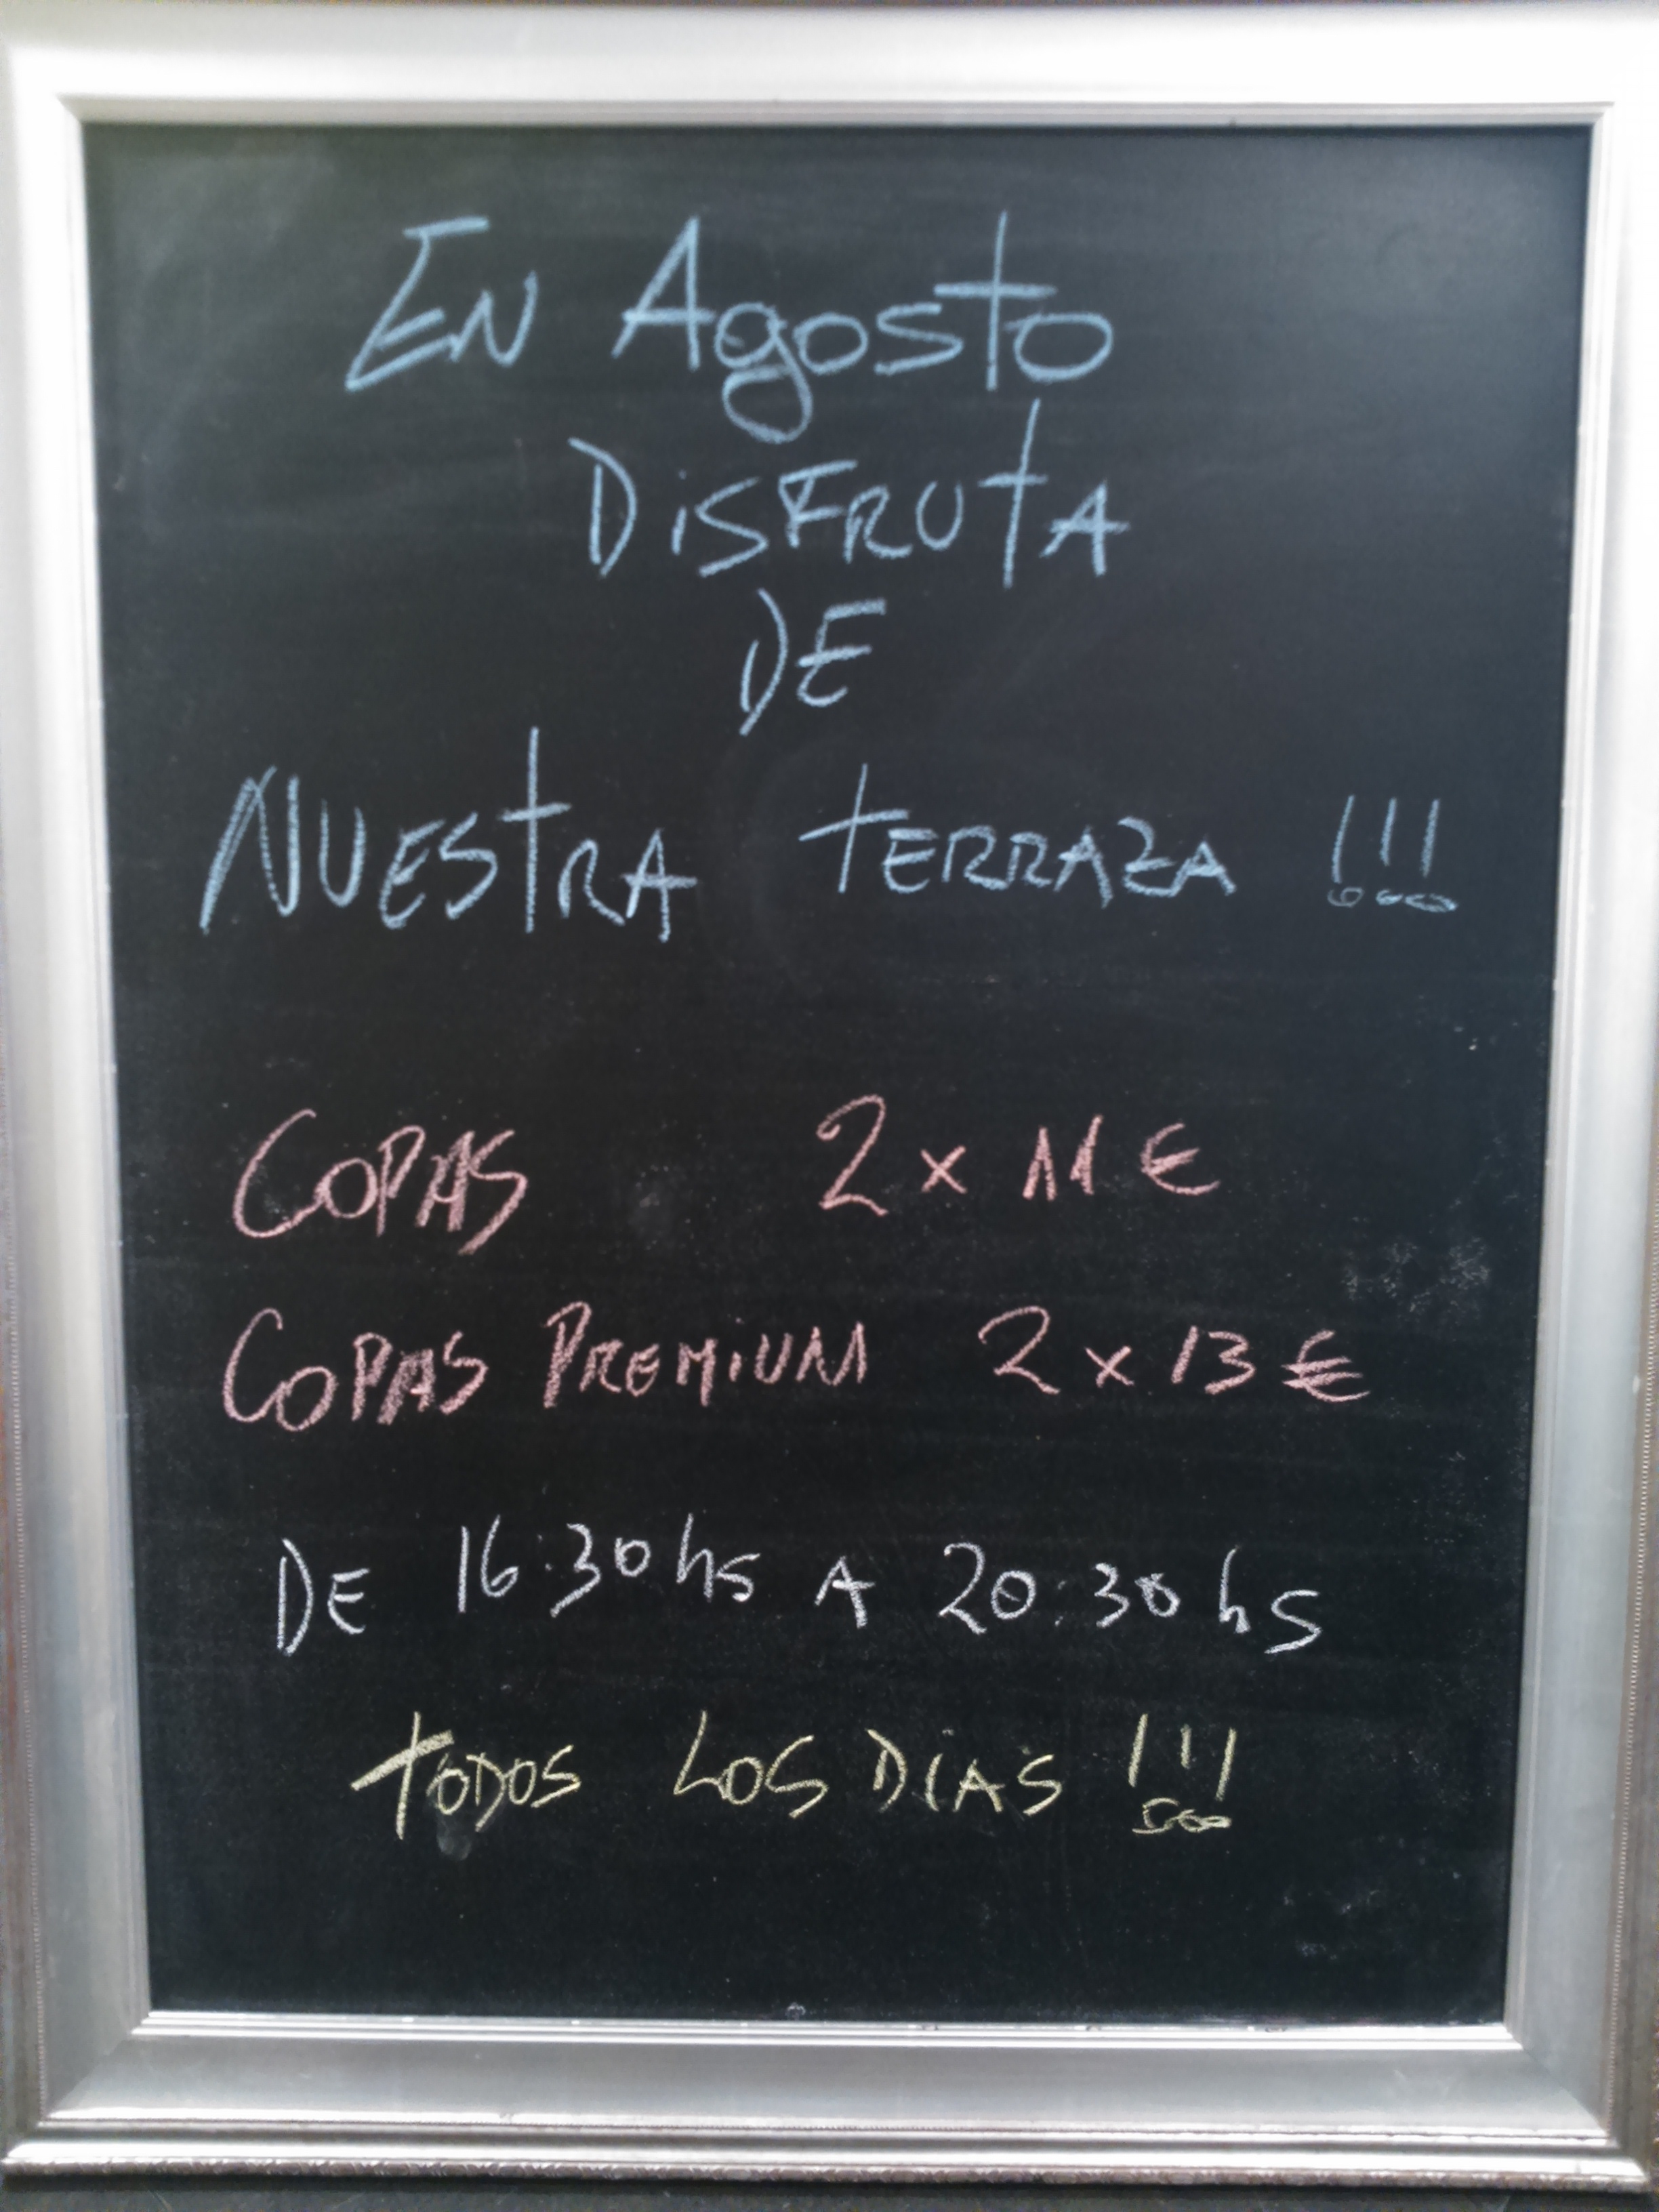 En Agosto
DiSFRUTA
DE
NUESTRA TERRAZA !!!
COPAS 2 x 11 €
COPAS PREMiUM 2 x 13 €
DE 16:30 hs A 20:30 hs
TODOS LOS DÍAS !!!